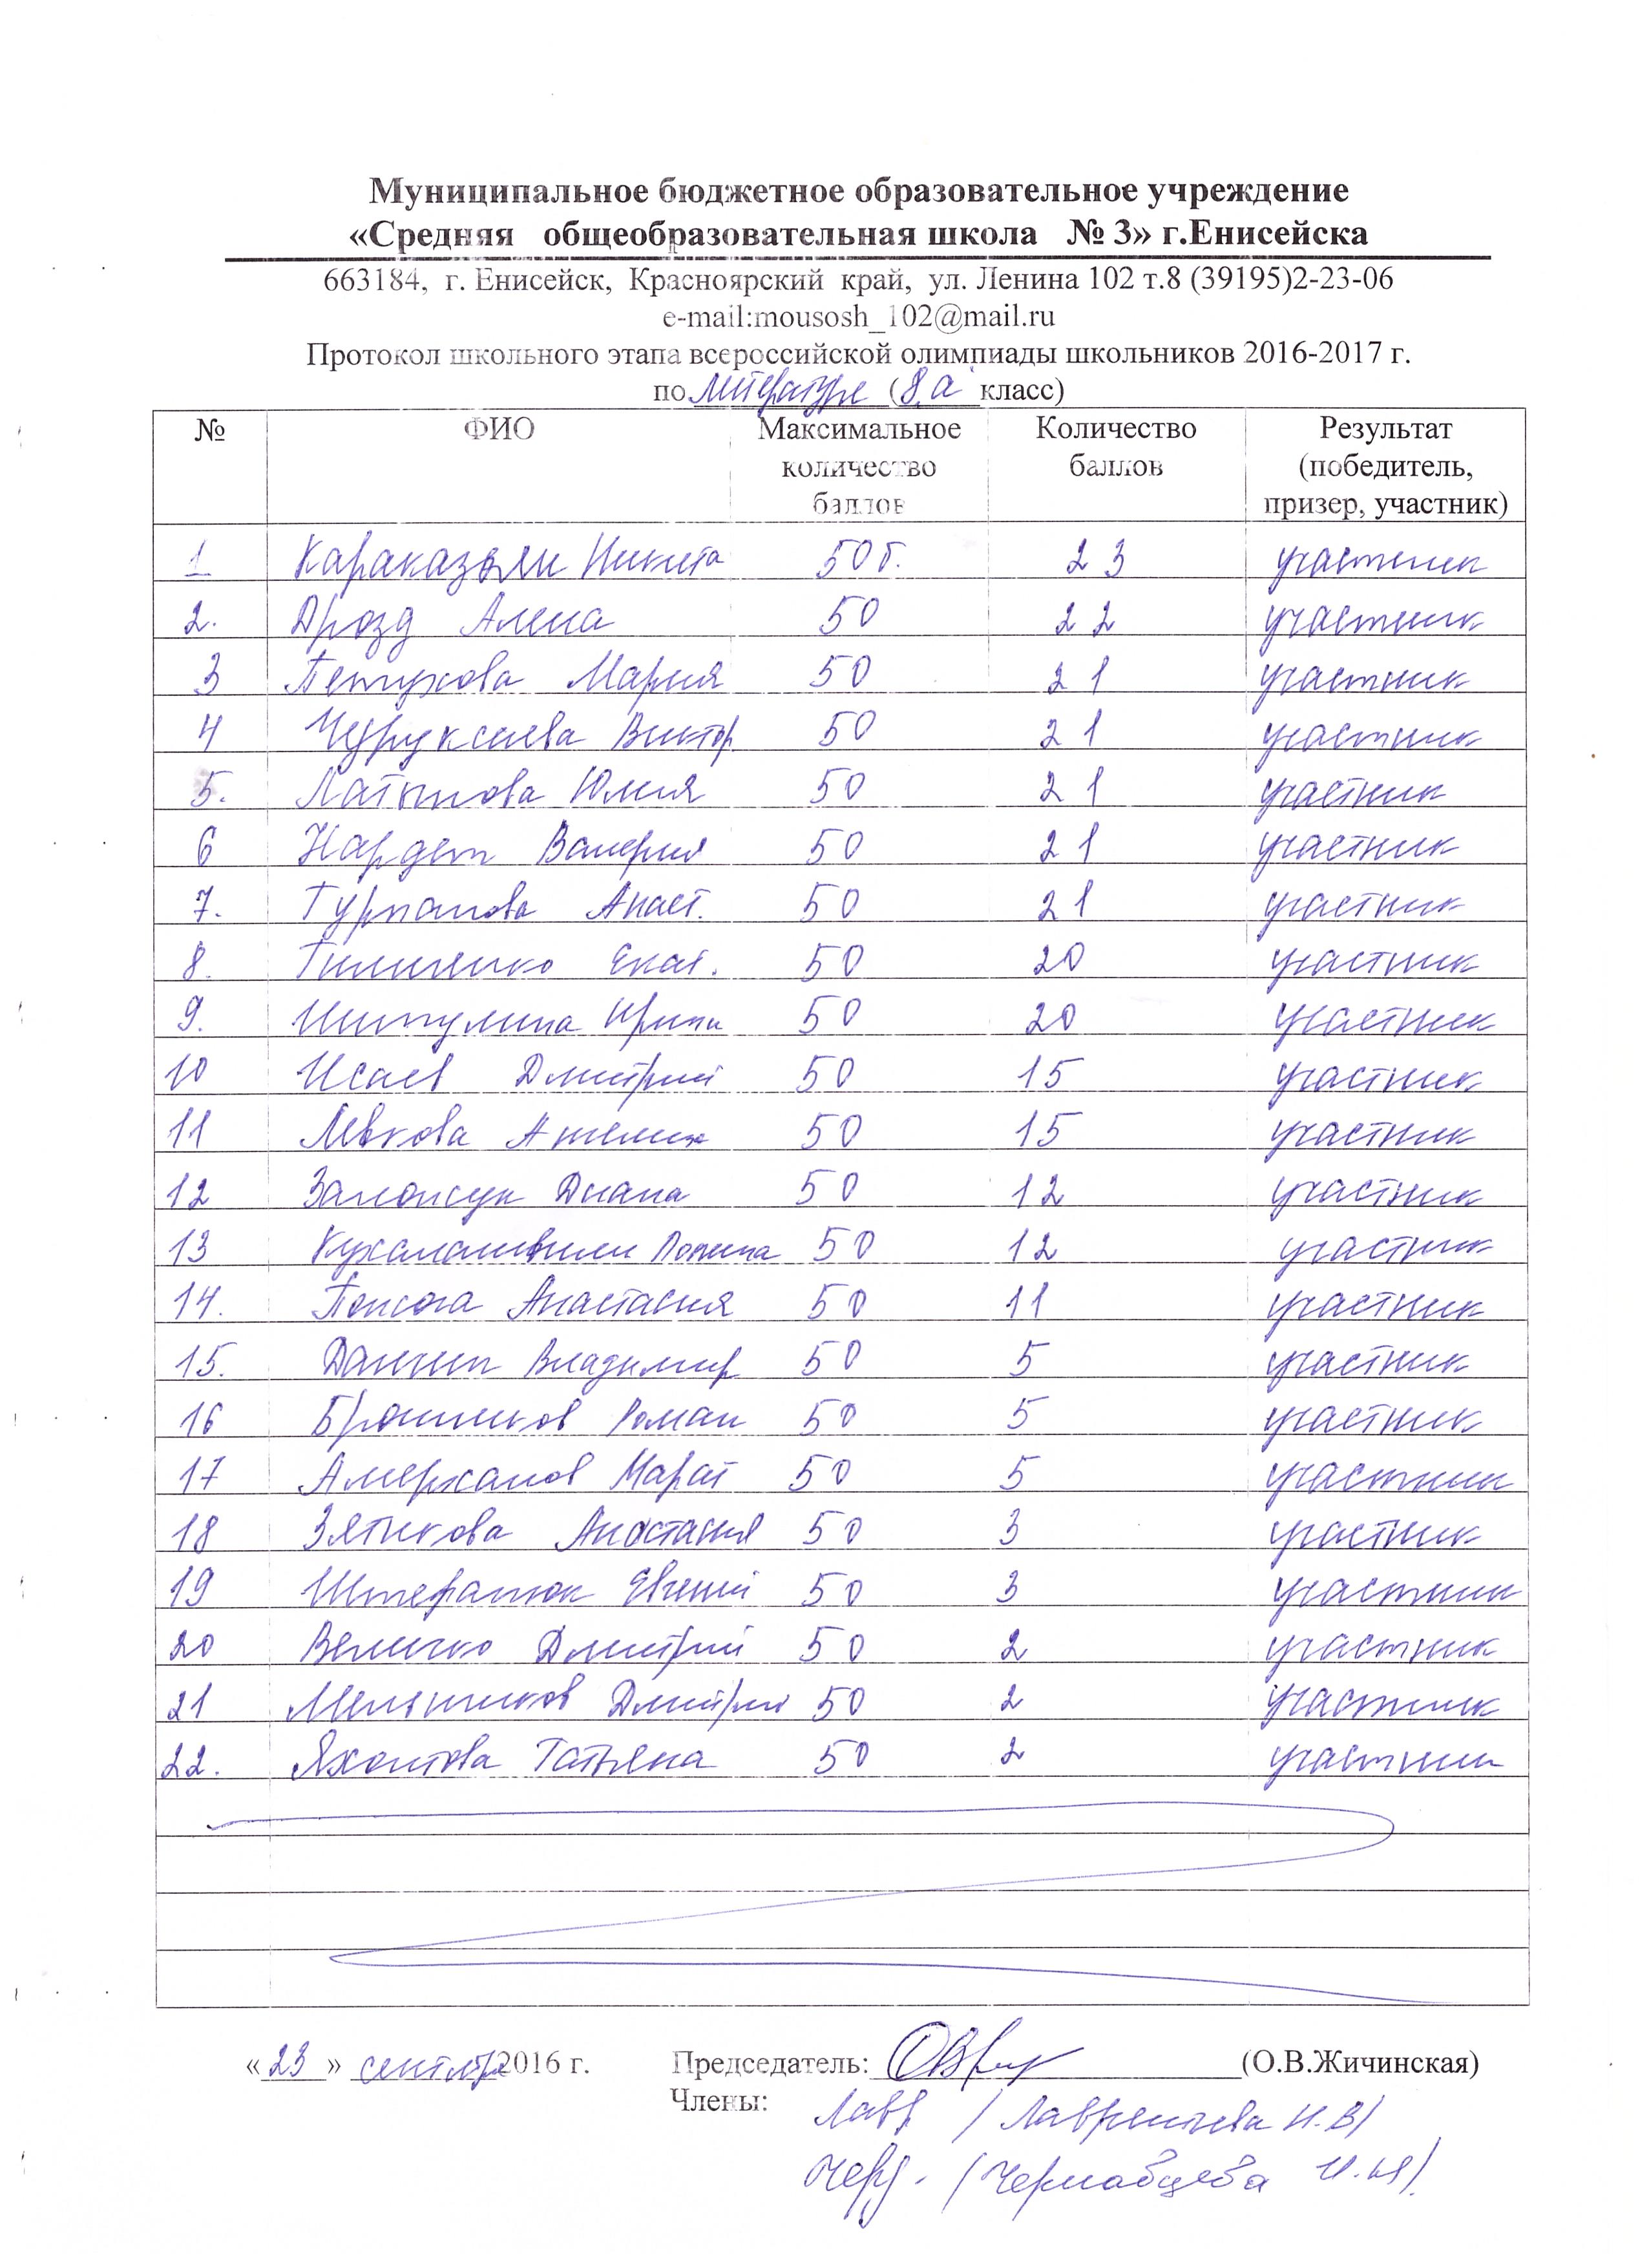 Муниципальное бюджетное образовательное учреждение
«Средняя общеобразовательная школа № 3» г.Енисейска
663184, г. Енисейск, Красноярский край, ул. Ленина 102 т.8 (39195)2-23-06
e-mail:mousosh_102@mail.ru
Протокол школьного этапа всероссийской олимпиады школьников 2016-2017 г.
по литературе (8 а класс)
№ ФИО Максимальное количество баллов Количество баллов Результат (победитель, призер, участник)
1 Никита 50б. 23 участник
2. Дрозд Алена 50 22 участник
3 Петухова Мария 50 21 участник
4 Виктор 50 21 участник
5. Латыпова Юлия 50 21 участник
6 Валерия 50 21 участник
7. Турпанова Анаст. 50 21 участник
8. Екат. 50 20 участник
9. Шипулина Ирина 50 20 участник
10 Исаев Дмитрий 50 15 участник
11 Левкова 50 15 участник
12 Диана 50 12 участник
13 50 12 участник
14. Анастасия 50 11 участник
15. Данин Владимир 50 5 участник
16 Бронников Роман 50 5 участник
17 Амерханов Марат 50 5 участник
18 Зятикова Анастасия 50 3 участник
19 Евгений 50 3 участник
20 Величко Дмитрий 50 2 участник
21 Мельников Дмитрий 50 2 участник
22. Яхонтова Татьяна 50 2 участник
«23» сентября 2016 г. Председатель: (О.В.Жичинская)
Члены: Лавр / Лаврентьева Н.В/